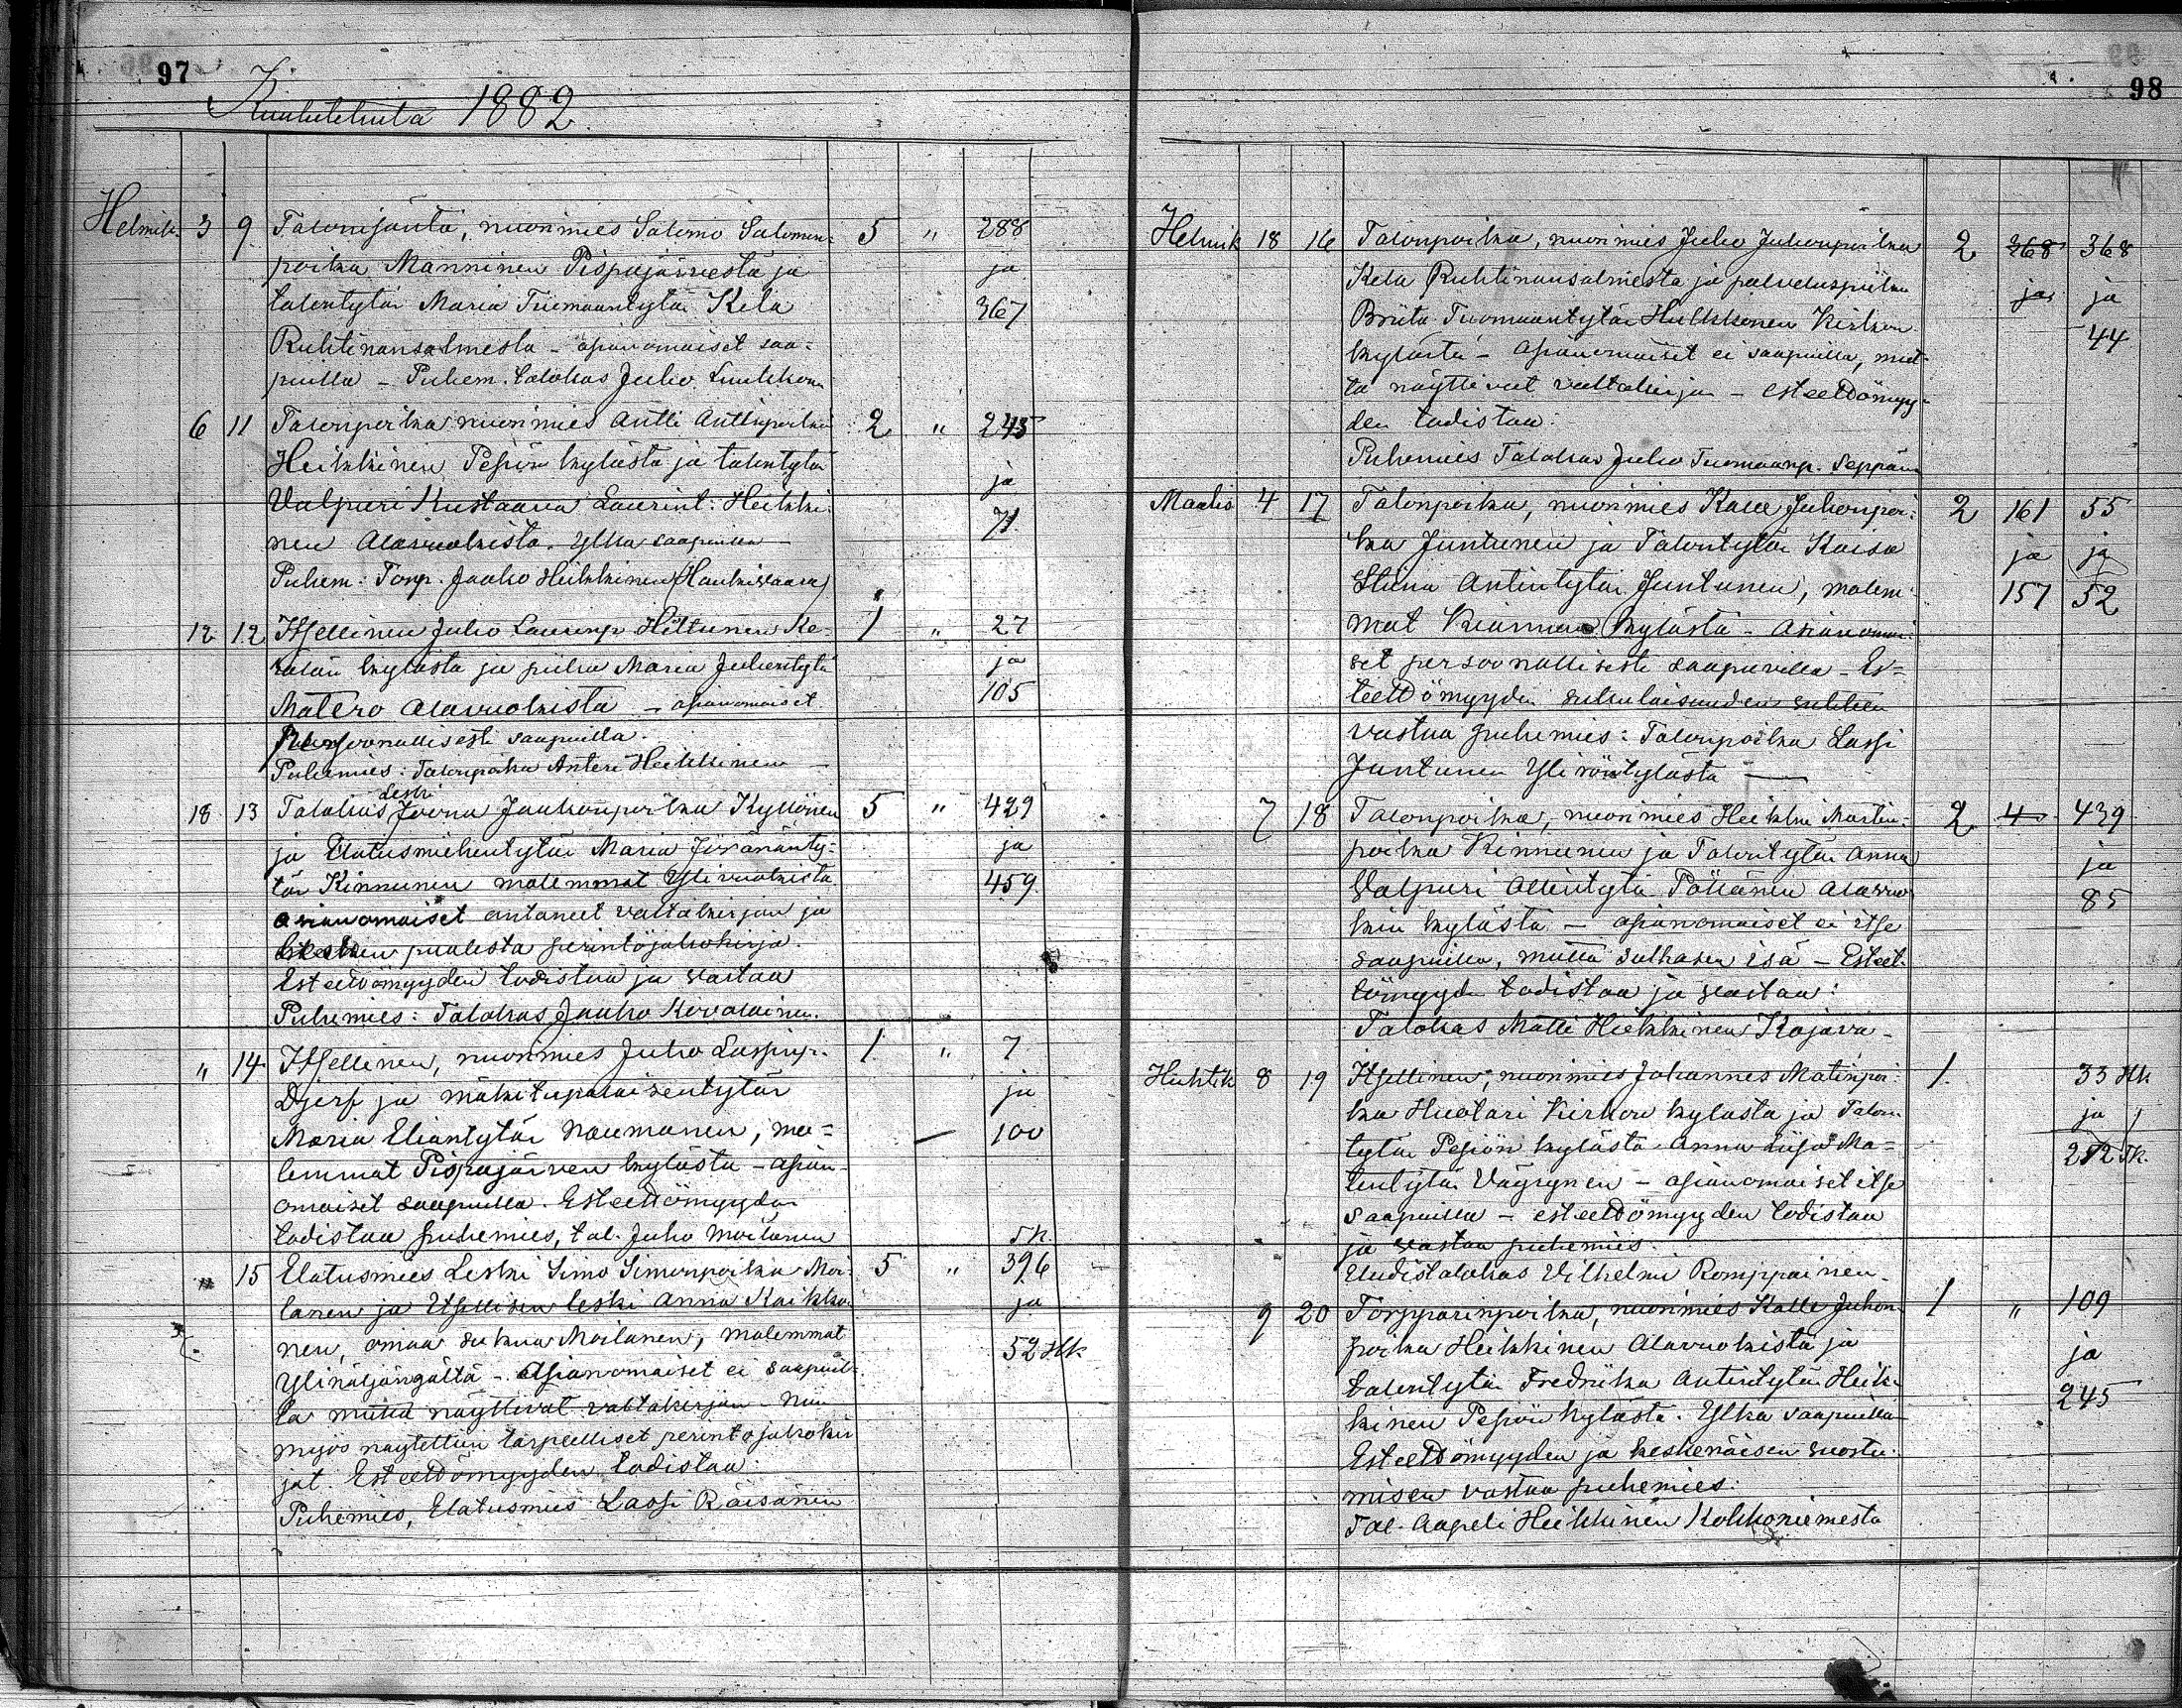 97
Kuulutuksia 1882
Helmik. 3 9 Talonisäntä, nuorimies Salomo Salomon- 5 " 288
poika Manninen Pispajärvestä ja ja
talontytär Maria Tuomaantytär Kela 367
Ruhtinansalmesta – asianomaiset saa-
puilla – Puhem. talokas Juho Luukkonen
6 11 Talonpoika nuorimies Antti Anttinpoika 2 " 245
Heikkinen Pesiön kylästä ja talontytär ja
Valpuri Kustaava Laurint: Heikki- 71
nen Alavuokista. Ylkä saapuilla –
Puhem: Torp. Jaako Heikkinen (Haukivaara)
12 12 Itsellinen Juho Laurinp Hiltunen Ke- 1 " 27
rälän kylästä ja piika Maria Juhontytär ja
Matero Alavuokista – asianomaiset 105
persoonallisesti saapuilla.
Puhemies: Talonpoika Anteri Heikkinen –
18 13 Talokas Leski Joona Jaakonpoika Kyllönen 5 " 429
ja Elatusmiehentytär Maria Yrjänänty- ja
tär Kinnunen molemmat Ylivuokista 459
asianomaiset antaneet valtakirjan ja
Lesken puolesta perintöjakokirja.
Esteettömyyden todistaa ja vastaa
Puhemies: Talokas Jaako Kovalainen.
" 14 Itsellinen, nuorimies Juho Lassinp. 1 " 7
Djerf ja mäkitupalaisentytär ja
Maria Eliantytär Naumanen, mo- 100
lemmat Pispajärven kylästä – asian-
omaiset saapuilla. Esteettömyyden
todistaa puhemies, tal. Juho Moilanen Sk.
" 15 Elatusmies Leski Simo Simonpoika Moi- 5 " 396
lanen ja Itsellisen leski Anna Kaikko- ja
nen, omaa sukua Moilanen, molemmat 52 Hk
Ylinäljängältä – Asianomaiset ei saapuil-
la mutta näyttivät valtakirjan – Niin
myös näytettiin tarpeelliset perintöjakokir
jat. Esteettömyyden todistaa:
Puhemies, Elatusmies Lassi Räisänen
98
Helmik 18 16 Talonpoika, nuorimies Juho Juhonpoika 2 368 368
Kela Ruhtinansalmesta ja palveluspiika ja ja
Briita Tuomaantytär Hulkkonen Kirkon 44
kylästä – Asianomaiset ei saapuilla, mut-
ta näyttivät valtakirjan – esteettömyy-
den todistaa.
Puhemies Talokas Juho Tuomaanp. Seppänen
Maalis 4 17 Talonpoika, nuorimies Kalle Juhonpoi- 2 161 55
ka Juntunen ja Talontytär Kaisa ja ja
Stiina Antintytär Juntunen, molem- 157 52
mat Kiannan kylästä – Asianomai-
set persoonallisesti saapuvilla – Es-
teettömyyden sukulaisuuden suhteen
vastaa puhemies: Talonpoika Lassi
Juntunen Ylivuokinkylästä –
7 18 Talonpoika, nuorimies Heikki Martin- 2 4 439
poika Kinnunen ja Talontytär Anna ja
Valpuri Allintytär Pöllänen Alavuo 85
kin kylästä – asianomaiset ei itse
saapuilla, mutta sulhasen isä – Esteet-
tömyyden todistaa ja vastaa:
Talokas Matti Heikkinen Kojava –
Huhtik 8 19 Itsellinen, nuorimies Johannes Matinpoi- 1. 33 Hk
ka Huotari Kirkon kylästä ja Talon ja
tytär Pesiön kylästä Anna Liisa Ma- 212 Sk.
tintytär Väyrynen – asianomaiset itse
saapuilla – esteettömyyden todistaa
ja vastaa puhemies.
Uudistalokas Vilhelmi Romppainen.
9 20 Torpparinpoika, nuorimies Kalle Juhon- 1 " 109
poika Heikkinen Alavuokista ja ja
talontytär Fredrika Antintytär Heik- 245
kinen Pesiön kylästä. Ylkä saapuilla
Esteettömyyden ja keskenäisen suostu-
misen vastaa puhemies:
Tal. Aapeli Heikkinen Kokkoniemestä